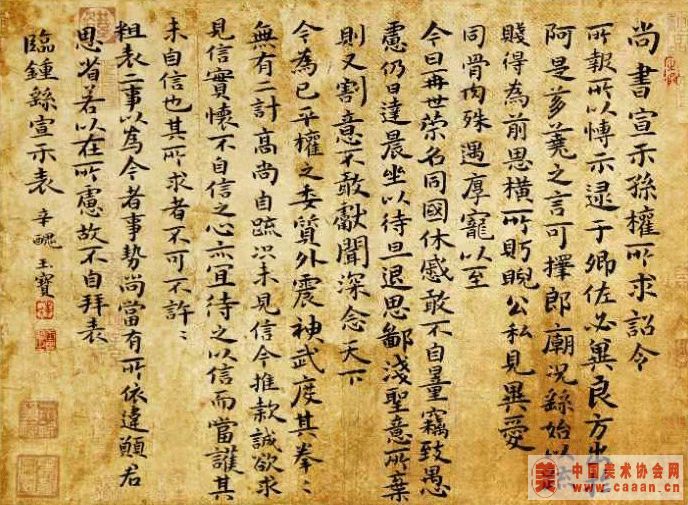 尚書宣示孫權所求詔令
所報所以博示逮于卿佐必冀良方出於
阿是芻蕘之言可擇郎廟況繇始以疏
賤得為前恩橫所眄睨公私見異愛
同骨肉殊遇厚寵以至
今日再世榮名同國休慼敢不自量竊致愚
慮仍日達晨坐以待旦退思鄙淺聖意所棄
則又割意不敢獻聞深念天下
今為已平權之委質外震神武度其拳〻
無有二計高尚自疏況未見信今推款誠欲求
見信實懷不自信之心亦宜待之以信而當護其
未自信也其所求者不可不許〻
粗表二事以為今者事勢尚當有所依違願君
思省若以在所慮故不自拜表
臨鍾繇宣示表 辛醜 玉寶
美 中国美术协会网
www.caaan.cn